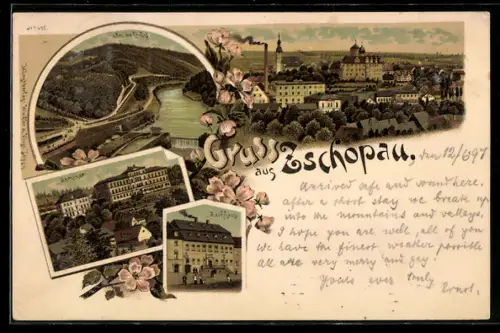 Gruss aus Zschopau, den 12/6 97
Arrived safe and sound here.
after a short stay we break up
into the mountains and valleys.
I hope you are well, all of you
We have the finest weather possible
all are very merry and gay!
Yours ever truly
Ernst.